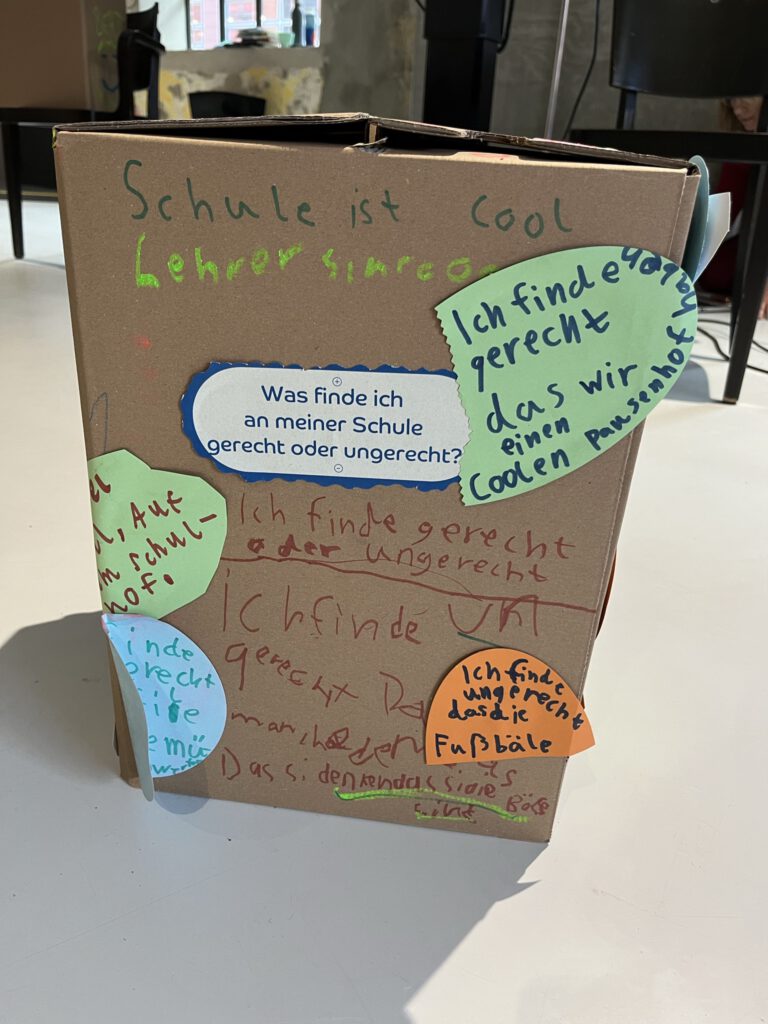 Schule ist cool
Lehrer
Ich finde
gerecht
das wir
einen
Coolen pausenhof
haben
Was finde ich
an meiner Schule
gerecht oder ungerecht?
Auf
schul-
hof.
Ich finde gerecht
oder ungerecht
ich finde un
gerecht
Das si denken das si die Böse
sint
Ich finde
ungerecht
das die
Fußbäle